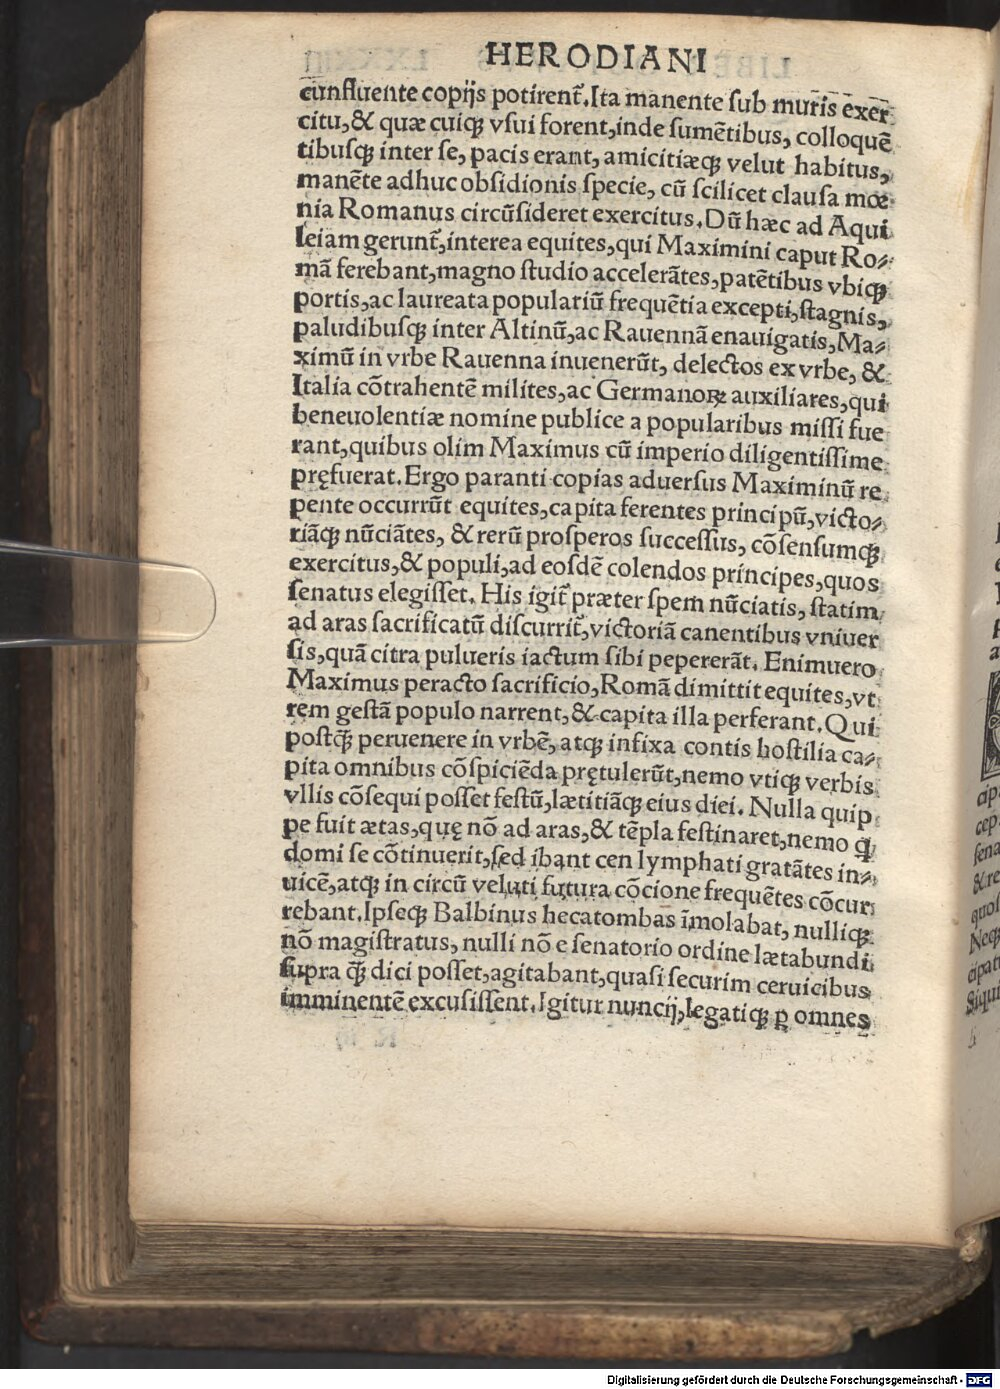 HERODIANI
cũnfluente copijs potirent᷑. Ita manente ſub muris exer
citu, & quæ cuiqꝫ vſui forent, inde ſumẽtibus, colloquẽ
tibuſqꝫ inter ſe, pacis erant, amicitiæqꝫ velut habitus,
manẽte adhuc obſidionis ſpecie, cũ ſcilicet clauſa mœ
nia Romanus circũſideret exercitus. Dũ hæc ad Aqui
leiam gerunt᷑, interea equites, qui Maximini caput Ro⸗
mã ferebant, magno ſtudio accelerãtes, patẽtibus vbiqꝫ
portis, ac laureata populariũ frequẽtia excepti, ſtagnis,
paludibuſqꝫ inter Altinũ, ac Rauennã enauigatis, Ma⸗
ximũ in vrbe Rauenna inuenerũt, delectos ex vrbe, &
Italia cõtrahentẽ milites, ac Germanoꝝ auxiliares, qui
beneuolentiæ nomine publice a popularibus miſſi fue
rant, quibus olim Maximus cũ imperio diligentiſſime
pręfuerat. Ergo paranti copias aduerſus Maximinũ re
pente occurrũt equites, capita ferentes principũ, victo⸗
riãqꝫ nũciãtes, & rerũ proſperos ſucceſſus, cõſenſumqꝫ
exercitus, & populi, ad eoſdẽ colendos principes, quos
ſenatus elegiſſet. His igit᷑ præter ſpem nũciatis, ſtatim
ad aras ſacrificatũ diſcurrit᷑, victoriã canentibus vniuer
ſis, quã citra pulueris iactum ſibi pepererãt. Enimuero
Maximus peracto ſacrificio, Romã dimittit equites, vt
rem geſtã populo narrent, & capita illa perferant. Qui
poſtꝗ̃ peruenere in vrbẽ, atqꝫ infixa contis hoſtilia ca⸗
pita omnibus cõſpiciẽda prętulerũt, nemo vtiqꝫ verbis
vllis cõſequi poſſet feſtũ, lætitiãqꝫ eius diei. Nulla quip
pe fuit ætas, quę nõ ad aras, & tẽpla feſtinaret, nemo q̃
domi ſe cõtinuerit, ſed ibant ceu lymphati gratãtes in⸗
uicẽ, atqꝫ in circũ veluti futura cõcione frequẽtes cõcur
rebant. Ipſeqꝫ Balbinus hecatombas ĩmolabat, nulliqꝫ
nõ magiſtratus, nulli nõ e ſenatorio ordine lætabundi
ſupra ꝗ̃ dici poſſet, agitabant, quaſi ſecurim ceruicibus
imminentẽ excuſiſſent. Igitur nuncij, legatiqꝫ ꝑ omnes
Digitalisierung gefördert durch die Deutsche Forschungsgemeinschaft - DFG